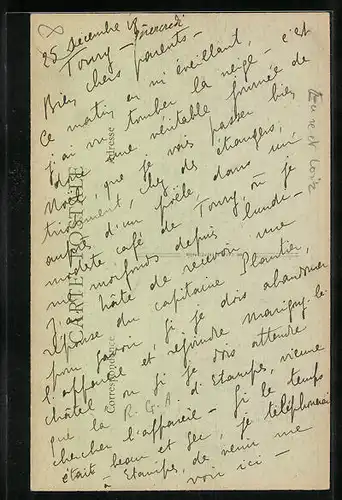 25 Décembre 18
Toury - Mercredi
Bien chers parents -
Ce matin en m'éveillant,
j'ai vu tomber la neige - c'est
donc une véritable journée de
Noël, que je vais passer bien
tristement, chez des étrangers,
auprès d'un poêle, dans un
modeste café de Toury, où je
me morfonds depuis lundi -
J'ai hâte de recevoir une
réponse du capitaine Plantier,
pour savoir si je dois abandonner
l'appareil et rejoindre Marigny le
châtel ou si je dois attendre
que la R.G.A. d'Etampes, vienne
chercher l'appareil - Si le temps
était beau et sec, je téléphonerai
à Etampes, de venir me
voir ici -
Eure et Loir
CARTE POSTALE
Correspondance
Adresse